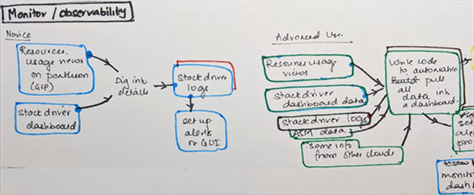 Monitor / observability
Novice
Resources
usage views
on pantheon
(GCP)
Stackdriver
dashboard
Dig into
details
Stackdriver
logs
set up
alerts
on GUI
Advanced User
Resources usage
views
Stackdriver
dashboard data
Stackdriver logs
ASM data
same info
from other clouds
Write code
to automatica
pull
all
data into
a dashboard.
set
aler
pro
know
monito
dashb